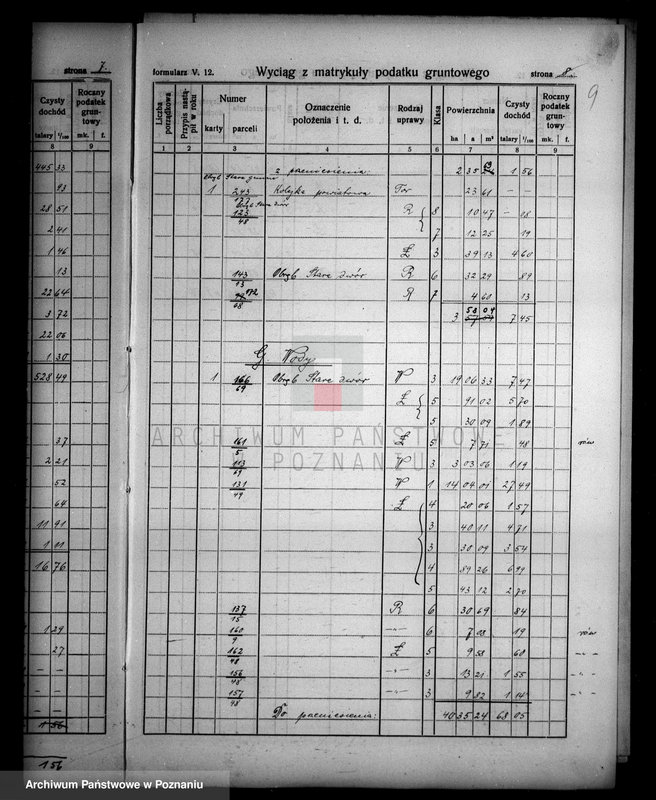 strona 7.
Czysty dochód
Roczny podatek gruntowy
talary 1/100 mk. f.
8 9
445 33
93
28 51
2 41
1 46
13
22 64
3 72
22 06
1 30
528 49
37
2 21
52
64
11 91
1 11
16 76
1 29
27
— —
— —
1 56
1 56
formularz V. 12. Wyciąg z matrykuły podatku gruntowego strona 8
9
Liczba porządkowa
Przypis nastąpił w roku
Numer
karty parceli
Oznaczenie położenia i t. d.
Rodzaj uprawy
Klasa
Powierzchnia
ha a m²
Czysty dochód
talary 1/100
Roczny podatek gruntowy
mk. f.
1 2 3 4 5 6 7 8 9
z przeniesienia 2 35 1 56
1 243 Kolejka powiatowa Tor 23 61 — —
123/48 R 8 10 47 — 08
7 12 25 19
Ł 3 39 13 4 60
143/13 Obręb Stare dwór R 6 32 29 89
172/08 R 7 4 60 13
3 58 04 7 45
G. Wody
1 166/69 Obręb Stare dwór W 3 19 06 33 7 47
Ł 5 91 02 5 70
5 30 09 1 89
161/5 Ł 5 7 71 48 rów
113/69 W 3 3 03 06 1 19
131/49 W 1 14 04 01 27 49
Ł 4 20 06 1 57
3 40 11 4 71
3 30 09 3 54
4 89 26 6 99
5 43 12 2 70
137/15 R 6 30 69 84
160/9 -„- 6 7 08 19 rów
162/48 Ł 5 9 58 60 -„-
156/48 -„- 3 13 21 1 55 -„-
157/48 -„- 3 9 82 1 14
Do przeniesienia: 40 35 24 68 05
ARCHIWUM PAŃSTWOWE
POZNANIU
Archiwum Państwowe w Poznaniu